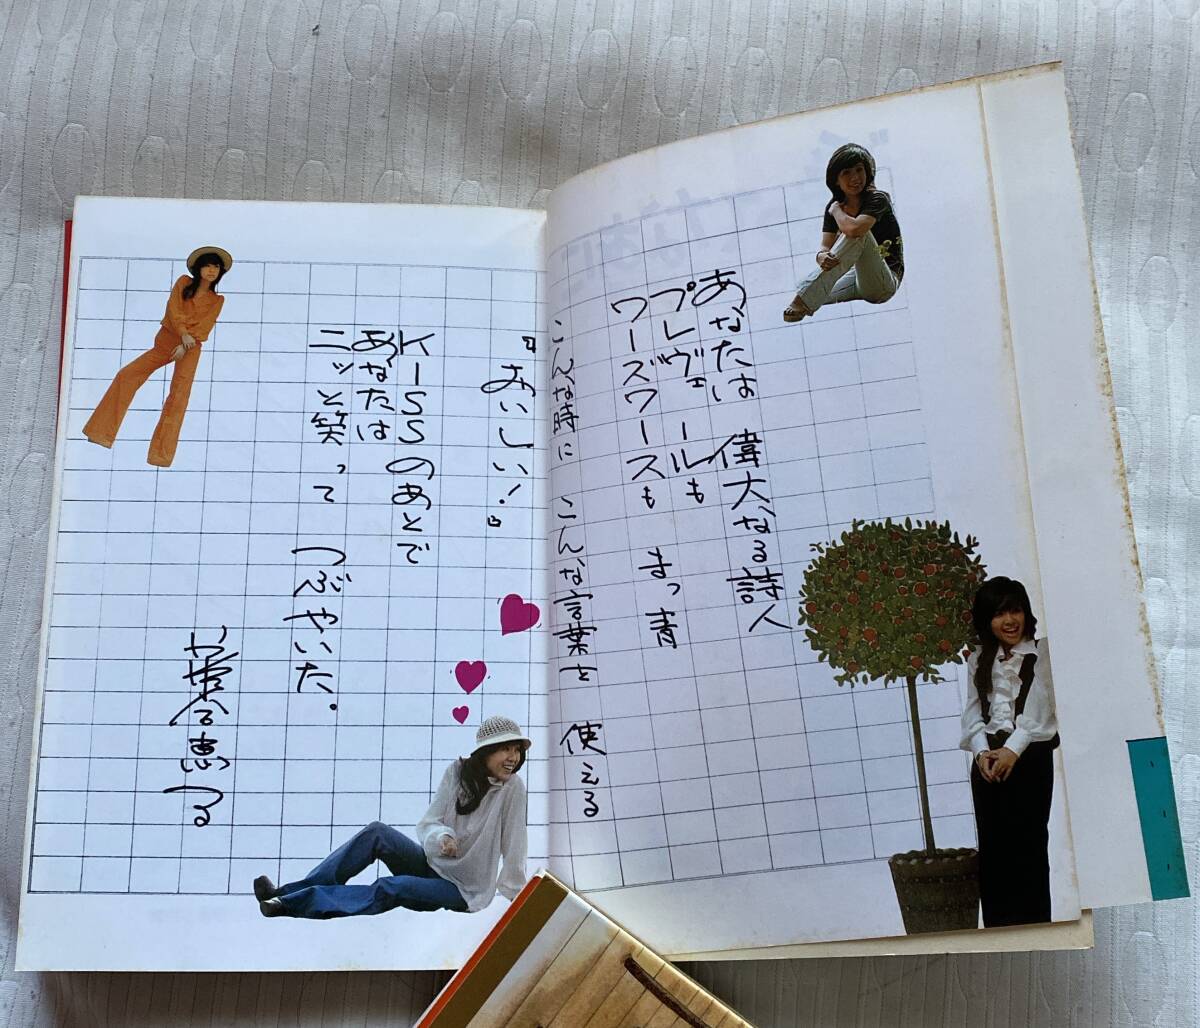 あなたは 偉大なる詩人
プレヴェールも
ワーズワースも まっ青
こんな時に こんな言葉を 使える
『おいしい!』
KISSのあとで
あなたは
ニッと笑って つぶやいた。